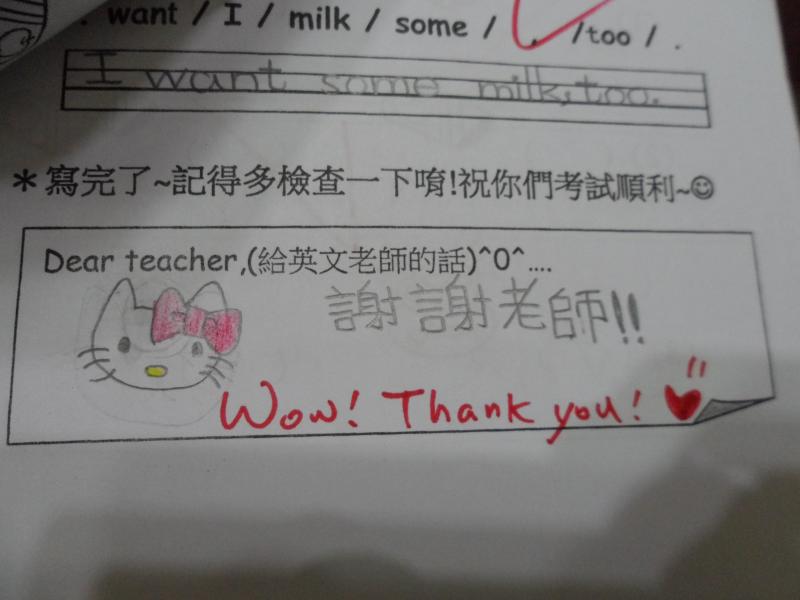 . want / I / milk / some / , /too / .
I want some milk, too.
＊寫完了~記得多檢查一下唷!祝你們考試順利~☺
Dear teacher,(給英文老師的話)^0^....
謝謝老師!!
Wow! Thank you! ♥